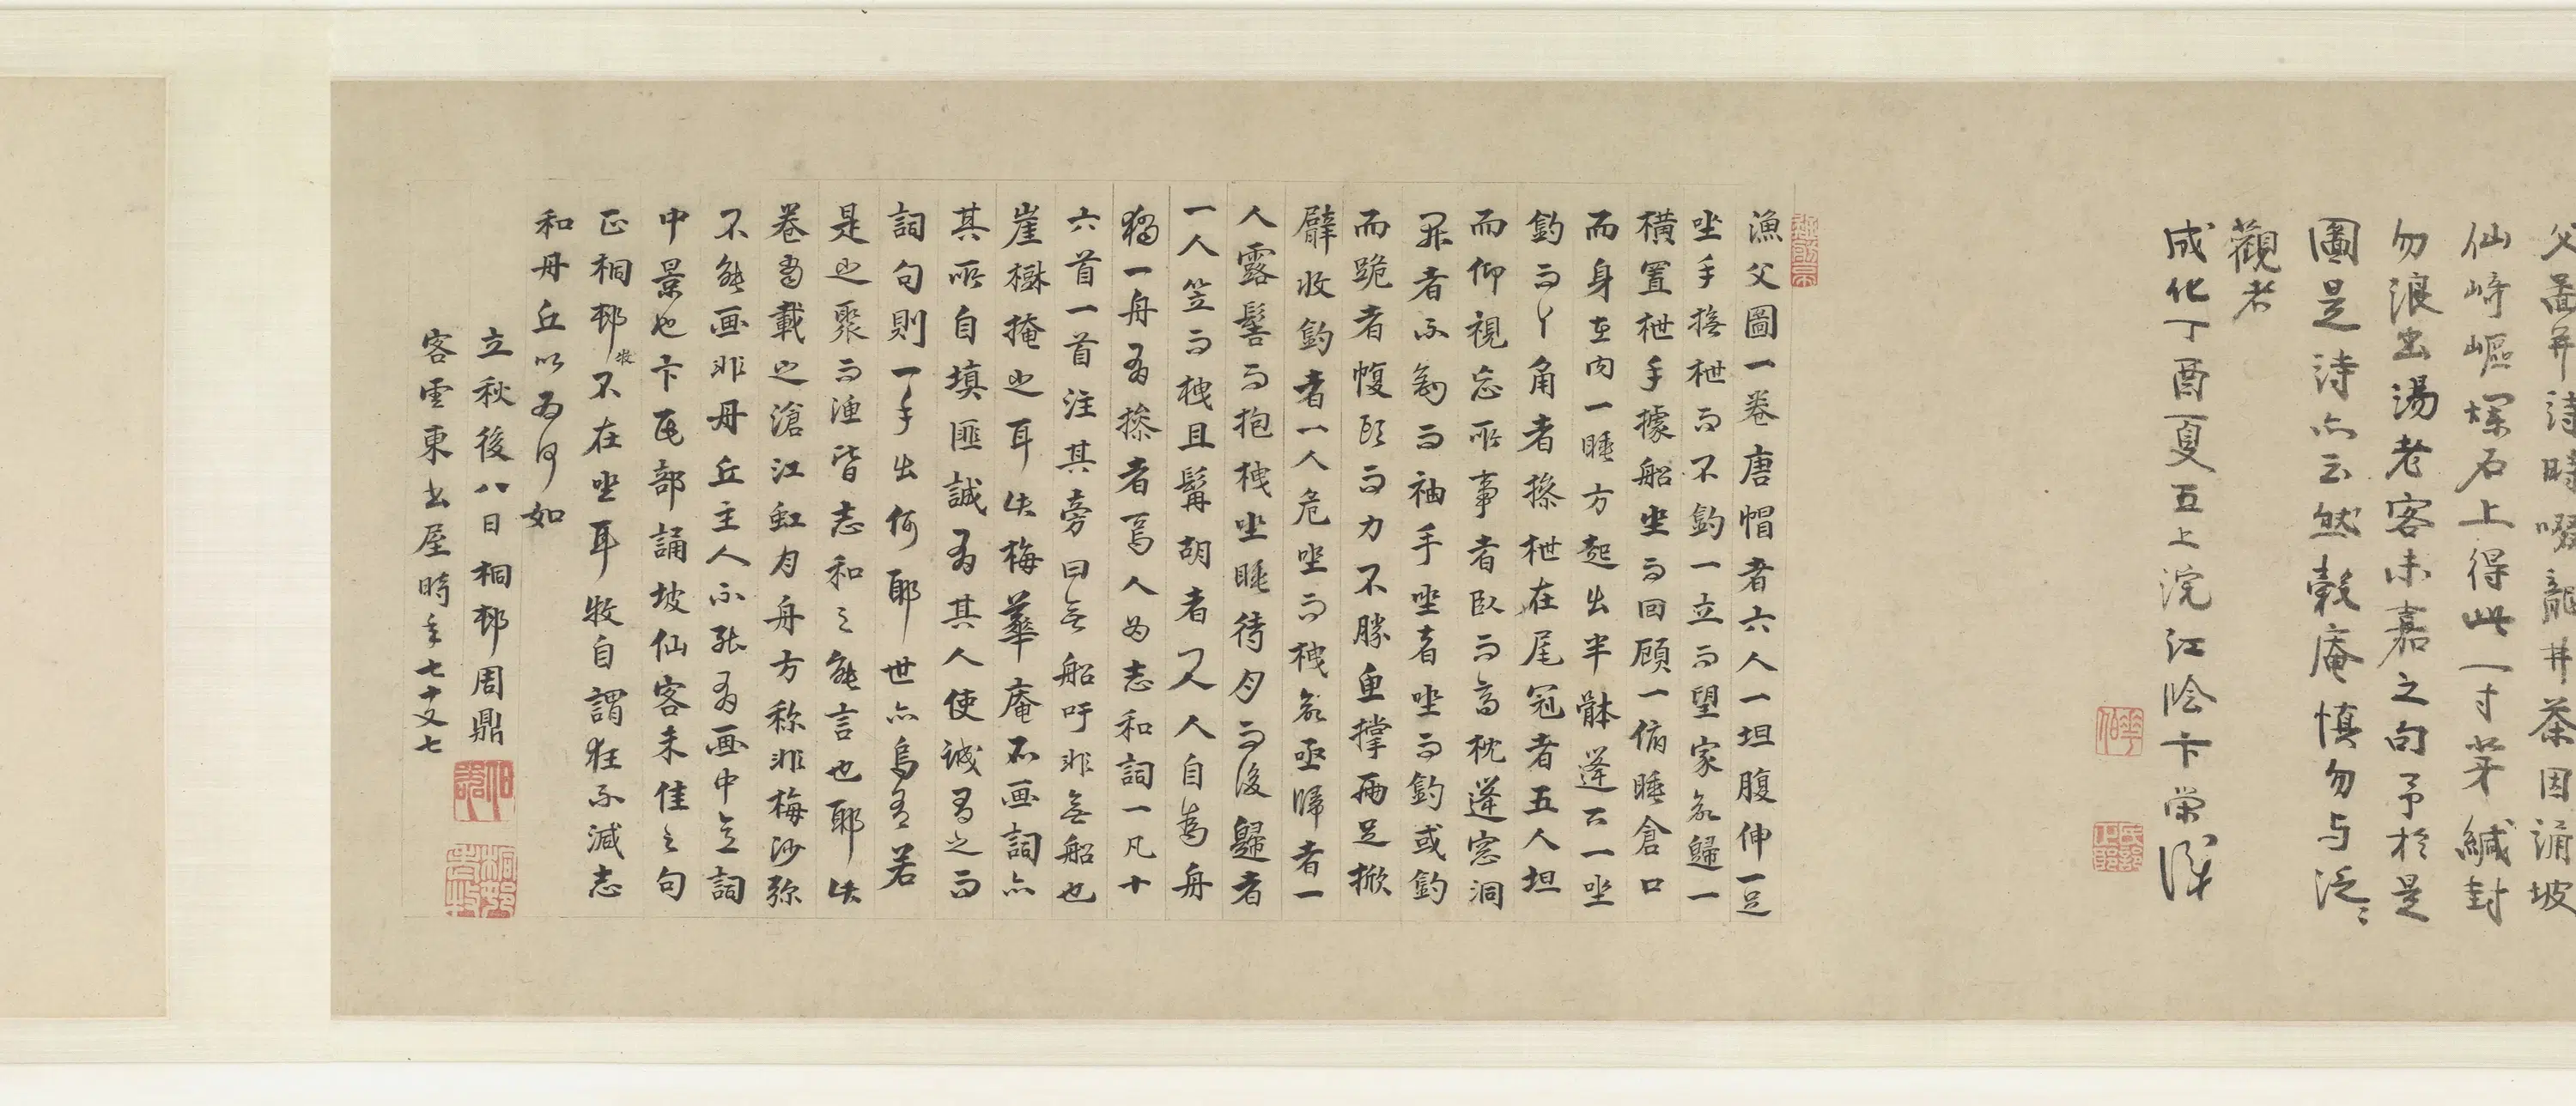 父啚并詩時啜龍井茶因誦坡
仙崎嶇爛石上得此一寸芽緘封
勿浪出湯老客未嘉之句予於是
圖是詩亦云然穀庵慎勿与泛〻
觀者
成化丁酉夏五上浣江陰卞榮識
漁父圖一卷唐帽者六人一坦腹伸一足
坐手撫枻而不釣一立而望家欲歸一
橫置枻手據船坐而回顧一俯睡倉口
而身在內一睡方起出半躰篷云一坐
釣而丫角者搽枻在尾冠者五人坦
而仰視忘所事者臥而高枕篷窓洞
開者不釣而袖手坐者坐而釣或釣
而跪者幞頭而力不勝重撑兩足掀
臂收釣者一人危坐而拽欲亟歸者一
人露髻而抱拽坐睡待月而後歸者
一人笠而拽且髯胡者又人人自為舟
獨一舟為搽者焉人為志和詞一凡十
六首一首注其旁曰無船吁非無船也
崖樹掩之耳此梅華庵不画詞亦
其所自填匪誠為其人使誠為之而
詞句則一手出何耶世亦烏有若
是之眾而漁皆志和之能言也耶此
卷當載之滄江虹月舟方称非梅沙弥
不能画非丹丘主人不張為画中無詞
中景也卞民部誦坡仙客未佳之句
正桐邨牧不在坐耳牧自謂狂不減志
和丹丘以為何如
立秋後八日桐邨周鼎
客雲東書屋時年七十又七